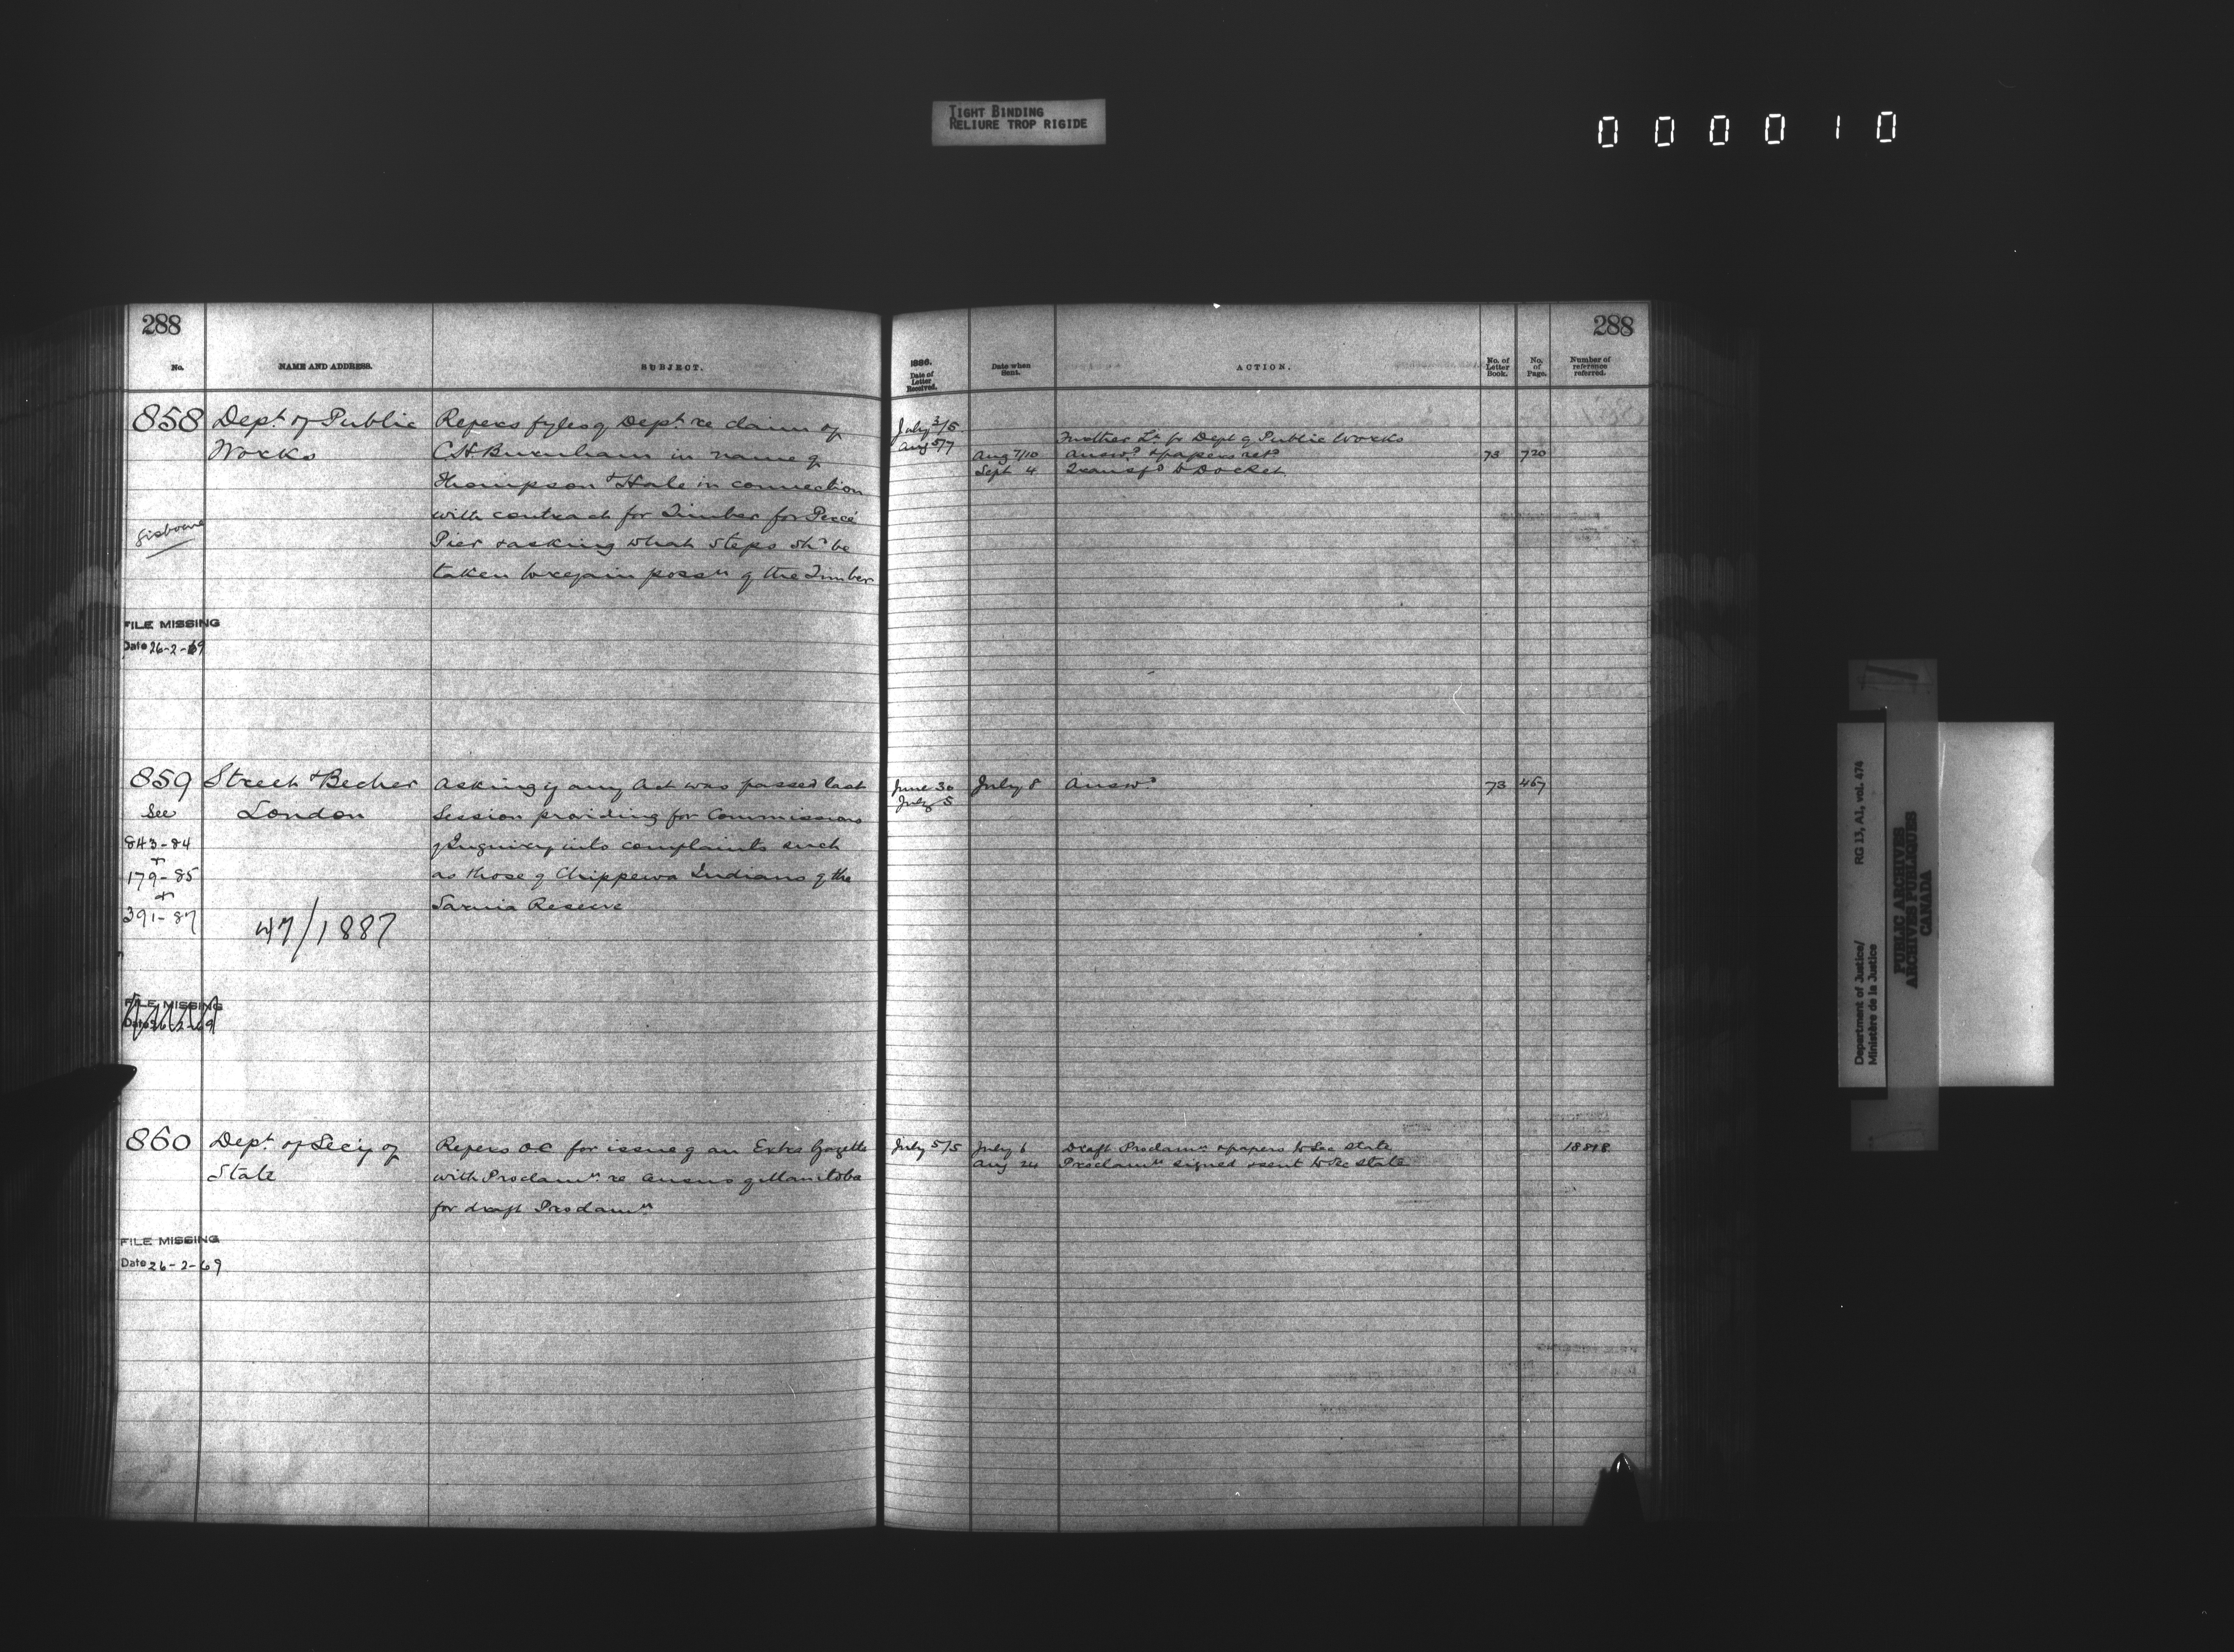 TIGHT BINDING
RELIURE TROP RIGIDE
000010
288
No.
NAME AND ADDRESS.
SUBJECT.
858 Dept. of Public
Works
Refers fyles of Dept. re claim of
C H Burnham in name of
Thompson & Hale in connection
with contract for Timber for Percé
Pier & asking what steps shd be
taken to regain possn of the Timber
Gisborne
FILE MISSING
Date 26-2-69
859 Street & Becher
See London
843-84
+
179-85
+
391-87
47/1887
Asking if any Act was passed last
Session providing for Commissions
of Inquiry into complaints such
as those of Chippewa Indians of the
Sarnia Reserve
FILE MISSING
Date 26-2-69
860 Dept. of Secy of
State
Refers OC for issue of an Extra Gazette
with Proclamn re Census of Manitoba
for draft Proclamn
FILE MISSING
Date 26-2-69
288
1886.
Date of
Letter
Received.
Date when
Sent.
ACTION.
No. of
Letter
Book.
No.
of
Page.
Number of
reference
referred.
July 3/5
Aug 5/7 Further Lr. fr Dept of Public Works
Aug 7/10 Answd. & papers retd 73 720
Sept 4 Transfd to Docket
June 30 July 8 Answd 73 467
July 5
July 5/5 July 6 Draft Proclamn & papers to Sec State 18898
Aug 24 Proclamn signed & sent to Sec State
Department of Justice/ RG 13, A1, vol. 474
Ministère de la Justice
PUBLIC ARCHIVES
ARCHIVES PUBLIQUES
CANADA